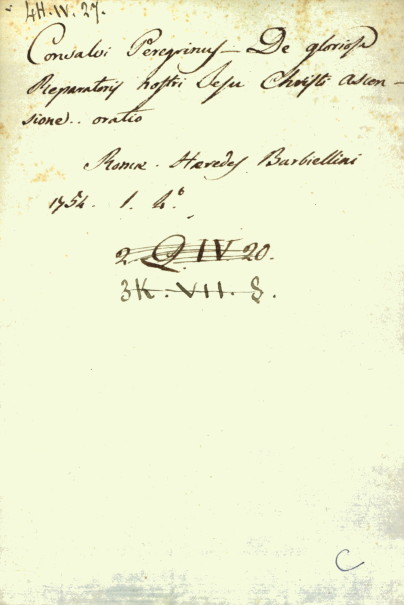 4H.IV.27.
Consalvi Peregrinus – De gloriosa
Reparatoris nostri Jesu Christi Ascen-
sione.. oratio
Romae. Haeredes Barbiellini
1754. 1. 4°.
2 Q. IV 20.
3K. VII. 8.
C